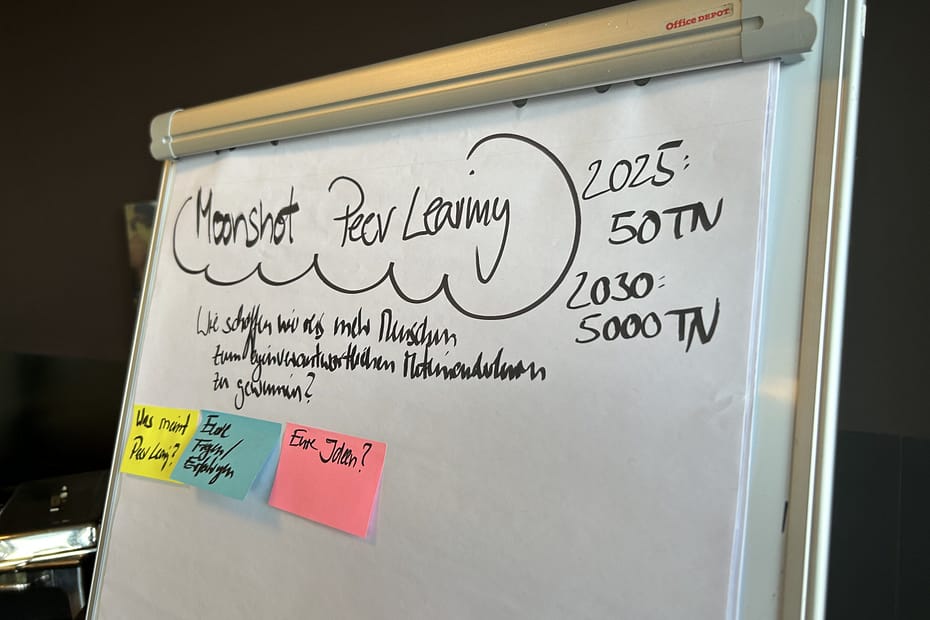 Office DEPOT
Moonshot Peer Learning
2025:
50 TN
2030:
5000 TN
Wie schaffen wir es mehr Menschen
zum eigenverantwortlichen
zu gewinnen?
Was meint
Peer Learng?
Eure
Fragen/
Erfahrungen
Eure Ideen?